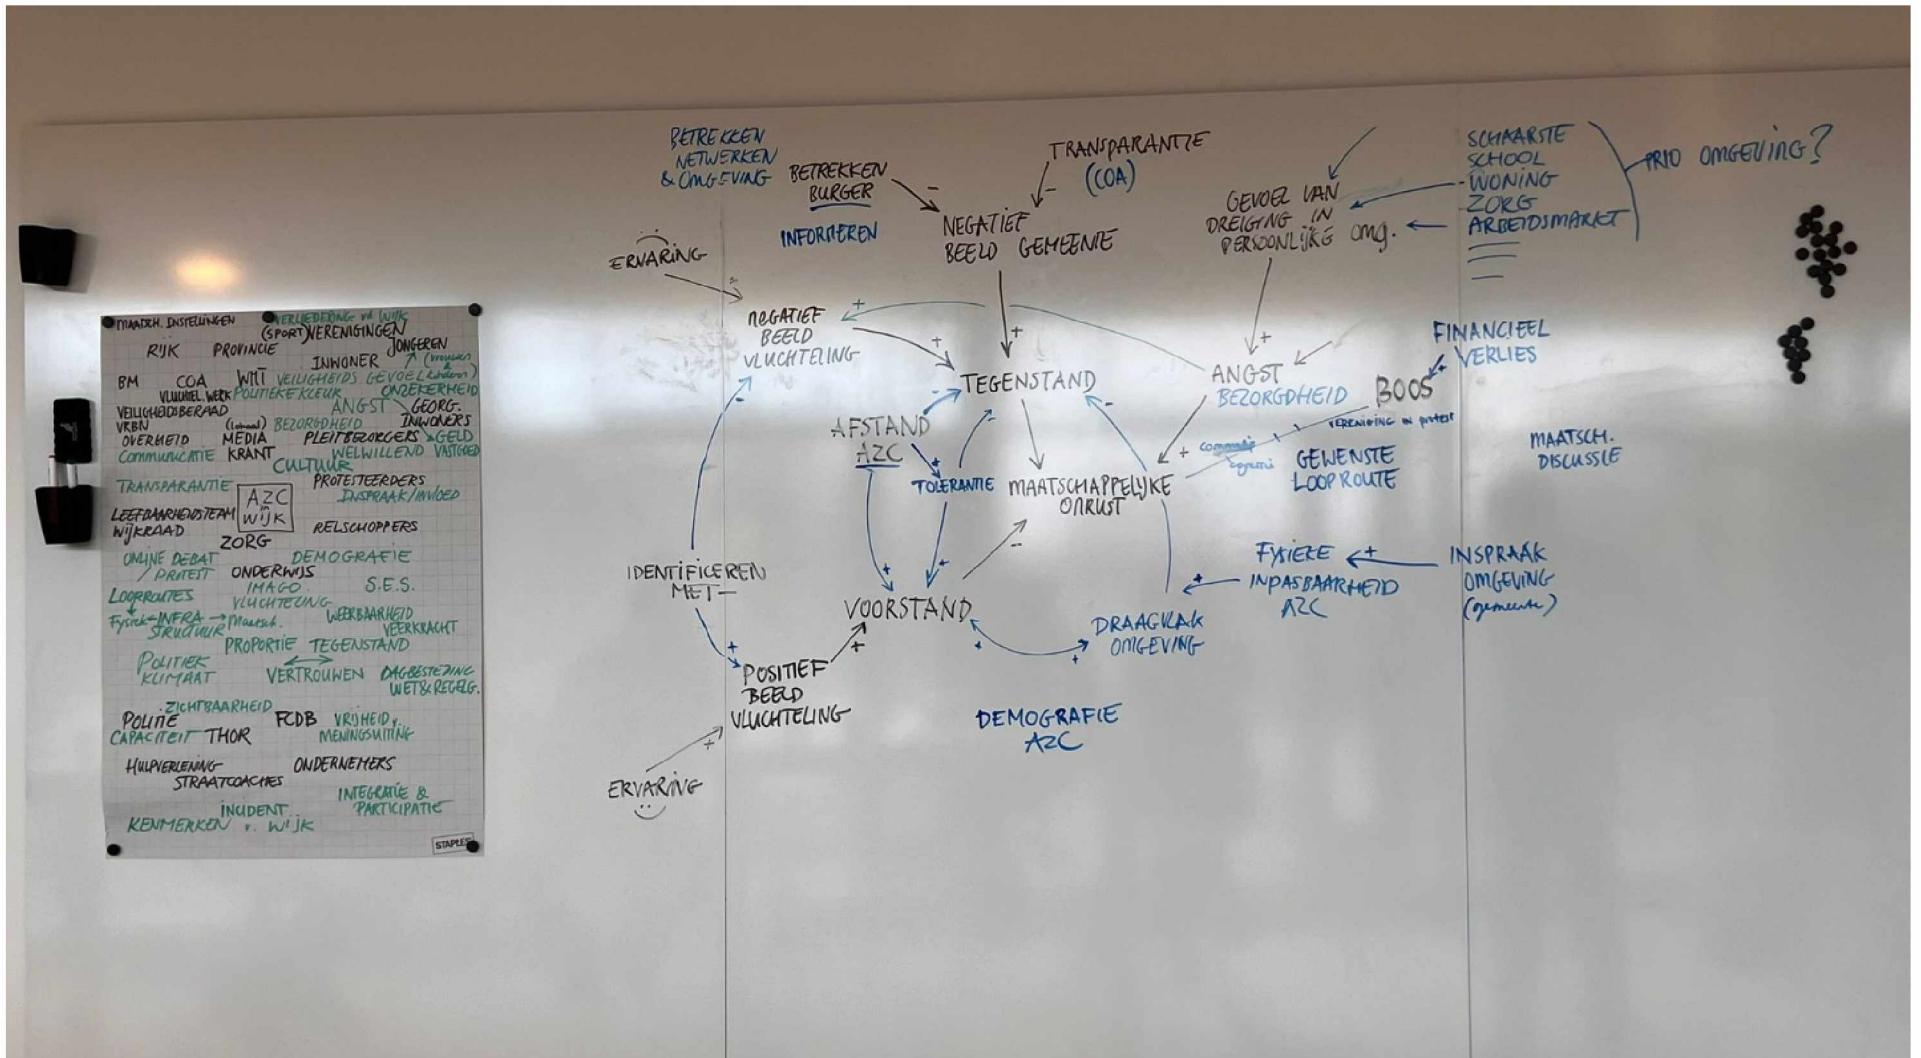 MAATSCH. INSTELLINGEN
VERLIEDERING vd WIJK
(SPORT)VERENIGINGEN
RIJK PROVINCIE
JONGEREN
INWONER
(vrouwen
&
kinderen)
BM COA WMT VEILIGHEIDS GEVOEL
VLUCHTEL. WERK POLITIEKE KLEUR ONZEKERHEID
VEILIGHEIDSBERAAD ANGST GEORG.
INWONERS
VRBN (lokaal) BEZORGDHEID
OVERHEID MEDIA PLEITBEZORGERS GELD
COMMUNICATIE KRANT WELWILLEND VASTGOED
CULTUUR
TRANSPARANTIE PROTESTEERDERS
INSPRAAK/INVLOED
AZC
in
WIJK
LEEFBAARHEIDSTEAM
WIJKRAAD RELSCHOPPERS
ZORG
ONLINE DEBAT DEMOGRAFIE
/PROTEST ONDERWIJS
IMAGO S.E.S.
LOOPROUTES VLUCHTELING
Fysiek INFRA Maatsch. WEERBAARHEID
STRUCTUUR VEERKRACHT
PROPORTIE TEGENSTAND
POLITIEK
KLIMAAT VERTROUWEN DAGBESTEDING
WET & REGELG.
ZICHTBAARHEID
POLITIE FCDB VRIJHEID v.
CAPACITEIT THOR MENINGSUITING
HULPVERLENING ONDERNEMERS
STRAATCOACHES
INTEGRATIE &
INCIDENT PARTICIPATIE
KENMERKEN v. WIJK
STAPLES
BETREKKEN
NETWERKEN
& OMGEVING
BETREKKEN
BURGER
INFORMEREN
TRANSPARANTIE
(COA)
-
-
NEGATIEF
BEELD GEMEENTE
GEVOEL VAN
DREIGING IN
PERSOONLIJKE OMG.
SCHAARSTE
SCHOOL
WONING
ZORG
ARBEIDSMARKT
PRIO OMGEVING?
ERVARING
NEGATIEF
BEELD
VLUCHTELING
+
+
+
+
TEGENSTAND
ANGST
BEZORGDHEID
FINANCIEEL
VERLIES
+
BOOS
VERENIGING IN protest
AFSTAND
AZC
-
-
-
-
+
TOLERANTIE
MAATSCHAPPELIJKE
ONRUST
+
GEWENSTE
LOOPROUTE
MAATSCH.
DISCUSSIE
IDENTIFICEREN
MET -
+
+
-
VOORSTAND
FYSIEKE
INPASBAARHEID
AZC
+
+
INSPRAAK
OMGEVING
(gemeente)
DRAAGVLAK
OMGEVING
+
+
+
+
POSITIEF
BEELD
VLUCHTELING
+
ERVARING
DEMOGRAFIE
AZC